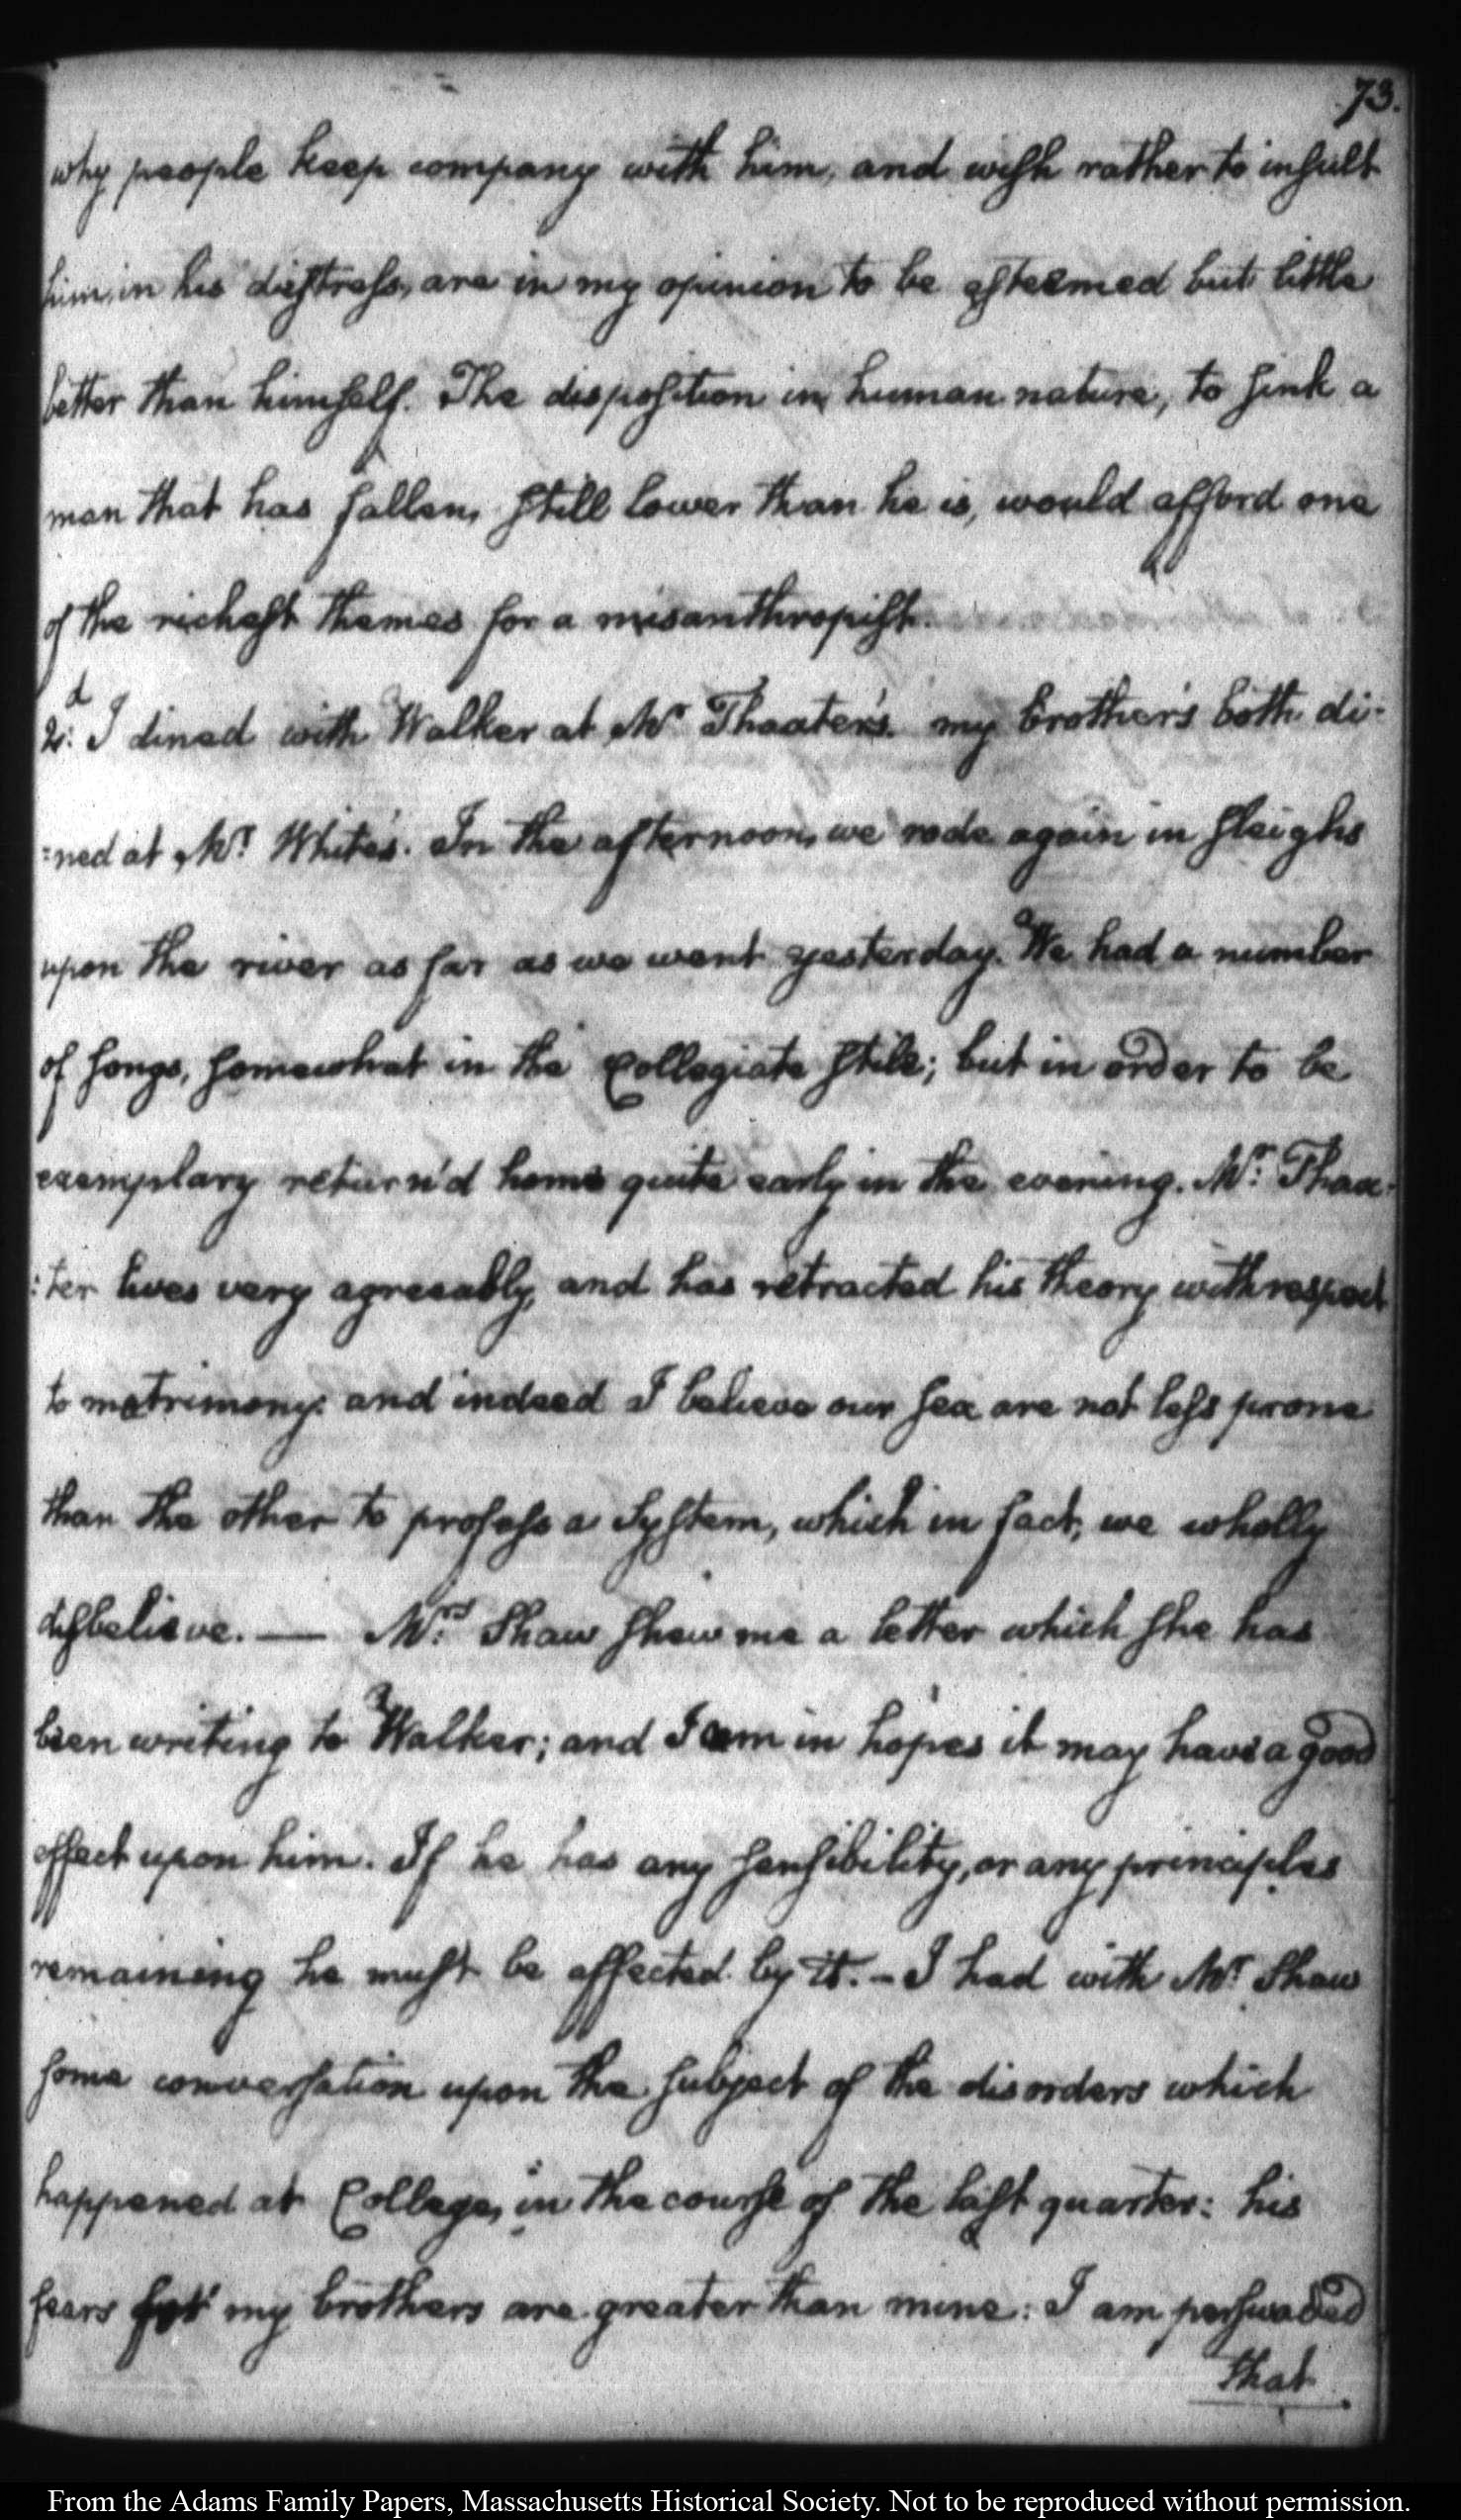 73.
why people keep company with him, and wish rather to insult
him, in his distress, are in my opinion to be esteemed but little
better than himself. The disposition in human nature, to sink a
man that has fallen, still lower than he is, would afford one
of the richest themes for a misanthropist.
2d: I dined with Walker at Mr Thaxter's. my brother's both di-
=ned at Mr White's. In the afternoon, we rode again in sleighs
upon the river as far as we went yesterday. We had a number
of songs, somewhat in the Collegiate stile; but in order to be
exemplary return'd home quite early in the evening. Mr: Thax-
:ter lives very agreeably, and has retracted his theory with respect
to matrimony: and indeed I believe our sex are not less prone
than the other to profess a System, which in fact, we wholly
disbelieve. — Mrs: Shaw shew me a letter which she has
been writing to Walker; and I am in hopes it may have a good
effect upon him. If he has any sensibility, or any principles
remaining he must be affected by it. - I had with Mr Shaw
some conversation upon the subject of the disorders which
happened at College, in the course of the last quarter: his
fears for my brothers are greater than mine: I am perswaded
that
From the Adams Family Papers, Massachusetts Historical Society. Not to be reproduced without permission.